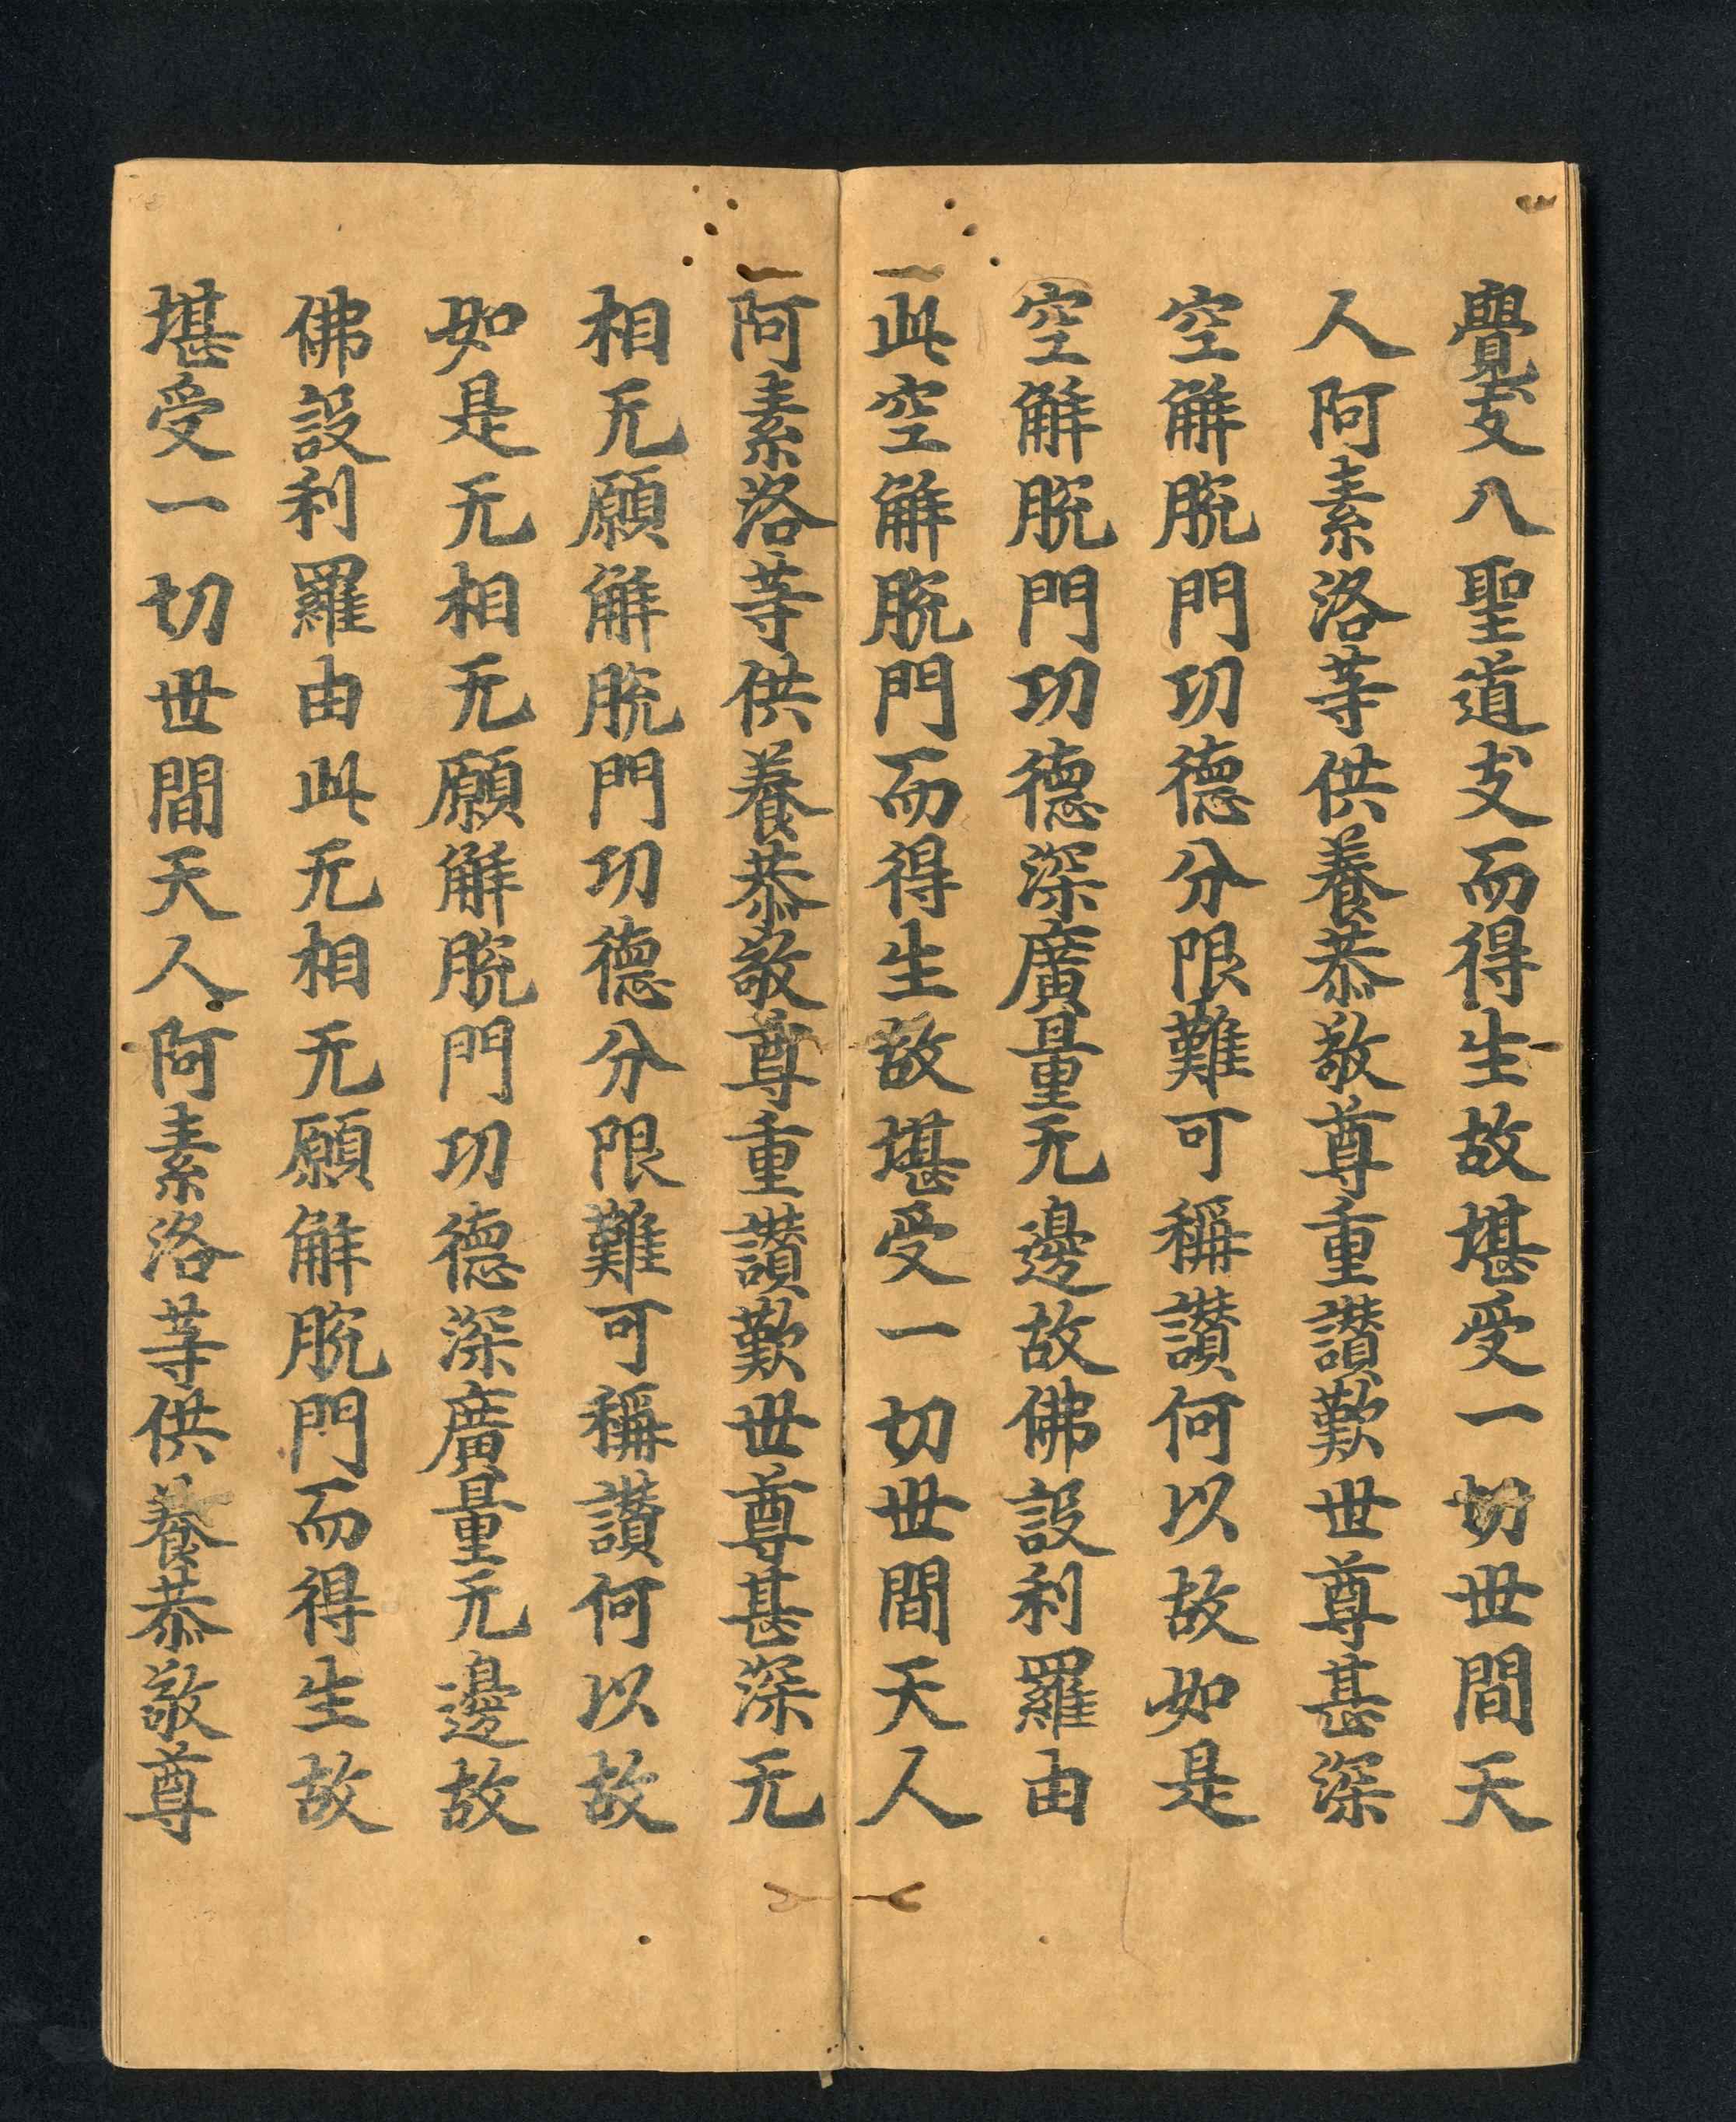 覺支八聖道支而得生故堪受一切世間天
人阿素洛等供養恭敬尊重讃歎世尊甚深
空解脫門功德分限難可稱讃何以故如是
空解脫門功德深廣量无邊故佛設利羅由
此空解脫門而得生故堪受一切世間天人
阿素洛等供養恭敬尊重讃歎世尊甚深无
相无願解脫門功德分限難可稱讃何以故
如是无相无願解脫門功德深廣量无邊故
佛設利羅由此无相无願解脫門而得生故
堪受一切世間天人阿素洛等供養恭敬尊